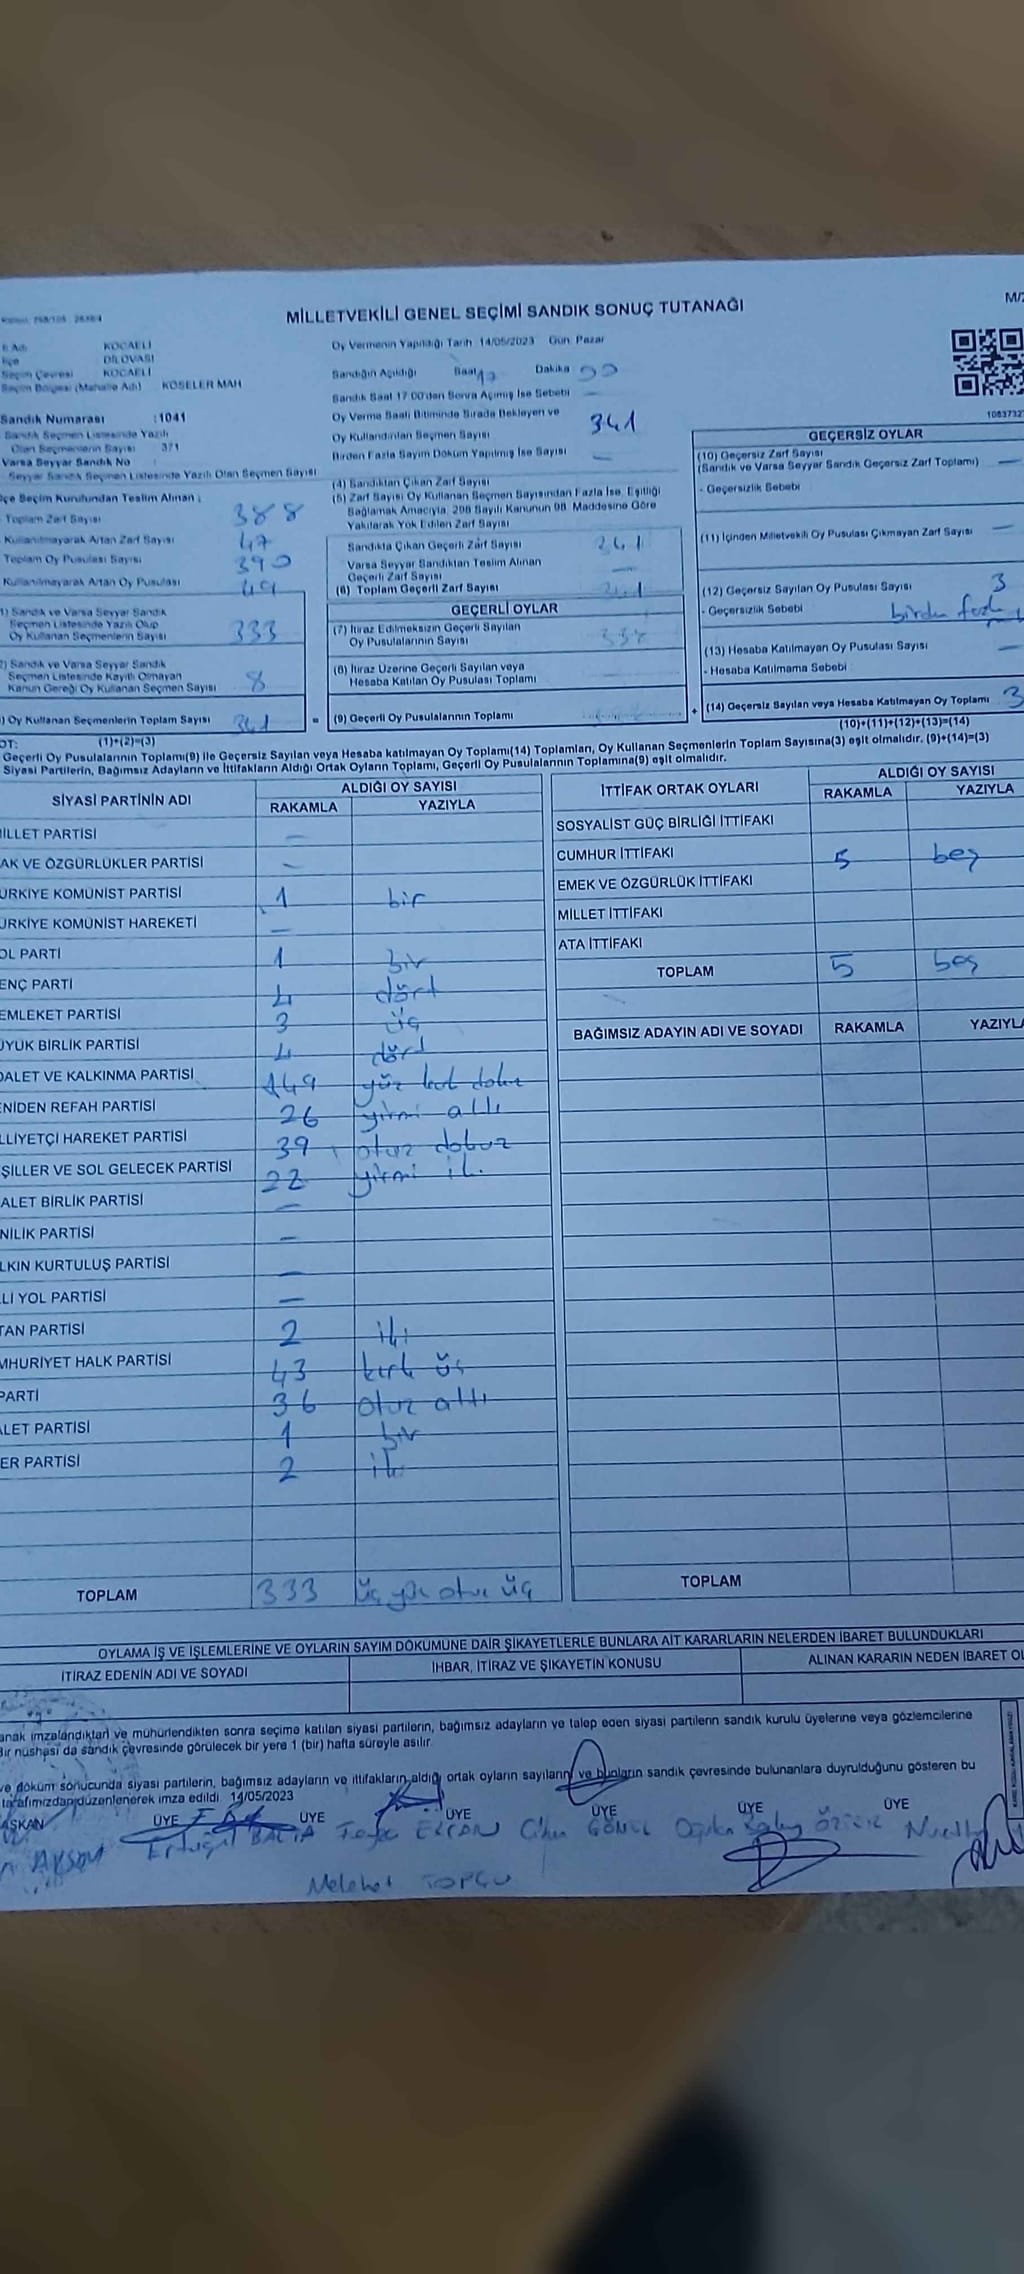 MİLLETVEKİLİ GENEL SEÇİMİ SANDIK SONUÇ TUTANAĞI
M/2
KOCAELİ
İlçe DİLOVASI
Seçim Çevresi KOCAELİ
Seçim Bölgesi (Mahalle Adı) KÖSELER MAH
Sandık Numarası :1041
Sandık Seçmen Listesinde Yazılı
Olan Seçmenlerin Sayısı 371
Varsa Seyyar Sandık No
Seyyar Sandık Seçmen Listesinde Yazılı Olan Seçmen Sayısı
lçe Seçim Kurulundan Teslim Alınan ;
Toplam Zarf Sayısı 388
Kullanılmayarak Artan Zarf Sayısı 47
Toplam Oy Pusulası Sayısı 390
Kullanılmayarak Artan Oy Pusulası 49
1) Sandık ve Varsa Seyyar Sandık
Seçmen Listesinde Yazılı Olup
Oy Kullanan Seçmenlerin Sayısı 333
2) Sandık ve Varsa Seyyar Sandık
Seçmen Listesinde Kayıtlı Olmayan
Kanun Gereği Oy Kullanan Seçmen Sayısı 8
) Oy Kullanan Seçmenlerin Toplam Sayısı 341
(1)+(2)=(3)
Oy Vermenin Yapıldığı Tarih 14/05/2023 Gün Pazar
Sandığın Açıldığı Saat Dakika
Sandık Saat 17:00'den Sonra Açımış İse Sebebi –
Oy Verme Saati Bitiminde Sırada Bekleyen ve
Oy Kullandırılan Seçmen Sayısı
341
Birden Fazla Sayım Döküm Yapılmış İse Sayısı –
(4) Sandıktan Çıkan Zarf Sayısı
(5) Zarf Sayısı Oy Kullanan Seçmen Sayısından Fazla İse, Eşitliği
Sağlamak Amacıyla, 298 Sayılı Kanunun 98. Maddesine Göre
Yakılarak Yok Edilen Zarf Sayısı
Sandıkta Çıkan Geçerli Zarf Sayısı
Varsa Seyyar Sandıktan Teslim Alınan
Geçerli Zarf Sayısı –
(6) Toplam Geçerli Zarf Sayısı
GEÇERLİ OYLAR
(7) İtiraz Edilmeksizin Geçerli Sayılan
Oy Pusulalarının Sayısı
(8) İtiraz Üzerine Geçerli Sayılan veya
Hesaba Katılan Oy Pusulası Toplamı
= (9) Geçerli Oy Pusulalarının Toplamı
GEÇERSİZ OYLAR
(10) Geçersiz Zarf Sayısı
(Sandık ve Varsa Seyyar Sandık Geçersiz Zarf Toplamı) –
- Geçersizlik Sebebi
(11) İçinden Milletvekili Oy Pusulası Çıkmayan Zarf Sayısı –
(12) Geçersiz Sayılan Oy Pusulası Sayısı 3
- Geçersizlik Sebebi birden fazla
(13) Hesaba Katılmayan Oy Pusulası Sayısı –
- Hesaba Katılmama Sebebi
+ (14) Geçersiz Sayılan veya Hesaba Katılmayan Oy Toplamı 3
(10)+(11)+(12)+(13)=(14)
OT:
Geçerli Oy Pusulalarının Toplamı(9) ile Geçersiz Sayılan veya Hesaba katılmayan Oy Toplamı(14) Toplamları, Oy Kullanan Seçmenlerin Toplam Sayısına(3) eşit olmalıdır. (9)+(14)=(3)
Siyasi Partilerin, Bağımsız Adayların ve İttifakların Aldığı Ortak Oyların Toplamı, Geçerli Oy Pusulalarının Toplamına(9) eşit olmalıdır.
SİYASİ PARTİNİN ADI ALDIĞI OY SAYISI
RAKAMLA YAZIYLA
İLLET PARTİSİ –
AK VE ÖZGÜRLÜKLER PARTİSİ –
ÜRKİYE KOMÜNİST PARTİSİ 1 bir
ÜRKİYE KOMÜNİST HAREKETİ –
OL PARTİ 1 bir
ENÇ PARTİ 4 dört
EMLEKET PARTİSİ 3 üç
ÜYÜK BİRLİK PARTİSİ 4 dört
DALET VE KALKINMA PARTİSİ 149 yüz kırk dokuz
ENİDEN REFAH PARTİSİ 26 yirmi altı
LLİYETÇİ HAREKET PARTİSİ 39 otuz dokuz
ŞİLLER VE SOL GELECEK PARTİSİ 22 yirmi iki
ALET BİRLİK PARTİSİ –
NİLİK PARTİSİ –
LKIN KURTULUŞ PARTİSİ –
LLİ YOL PARTİSİ –
TAN PARTİSİ 2 iki
MHURİYET HALK PARTİSİ 43 kırk üç
PARTİ 36 otuz altı
ALET PARTİSİ 1 bir
ER PARTİSİ 2 iki
TOPLAM 333 üç yüz otuz üç
İTTİFAK ORTAK OYLARI ALDIĞI OY SAYISI
RAKAMLA YAZIYLA
SOSYALİST GÜÇ BİRLİĞİ İTTİFAKI
CUMHUR İTTİFAKI 5 beş
EMEK VE ÖZGÜRLÜK İTTİFAKI
MİLLET İTTİFAKI
ATA İTTİFAKI
TOPLAM 5 beş
BAĞIMSIZ ADAYIN ADI VE SOYADI RAKAMLA YAZIYLA
TOPLAM
OYLAMA İŞ VE İŞLEMLERİNE VE OYLARIN SAYIM DÖKÜMÜNE DAİR ŞİKAYETLERLE BUNLARA AİT KARARLARIN NELERDEN İBARET BULUNDUKLARI
İTİRAZ EDENİN ADI VE SOYADI İHBAR, İTİRAZ VE ŞİKAYETİN KONUSU ALINAN KARARIN NEDEN İBARET OL
anak imzalandıktan ve mühürlendikten sonra seçime katılan siyasi partilerin, bağımsız adayların ve talep eden siyasi partilerin sandık kurulu üyelerine veya gözlemcilerine
Bir nüshası da sandık çevresinde görülecek bir yere 1 (bir) hafta süreyle asılır.
ve döküm sonucunda siyasi partilerin, bağımsız adayların ve ittifakların aldığı ortak oyların sayıların ve bunların sandık çevresinde bulunanlara duyrulduğunu gösteren bu
tarafımızdan düzenlenerek imza edildi. 14/05/2023
AŞKAN ÜYE ÜYE ÜYE ÜYE ÜYE ÜYE
AKSOY Ertuğrul ERCAN GÖNÜL
Melehat TOPÇU